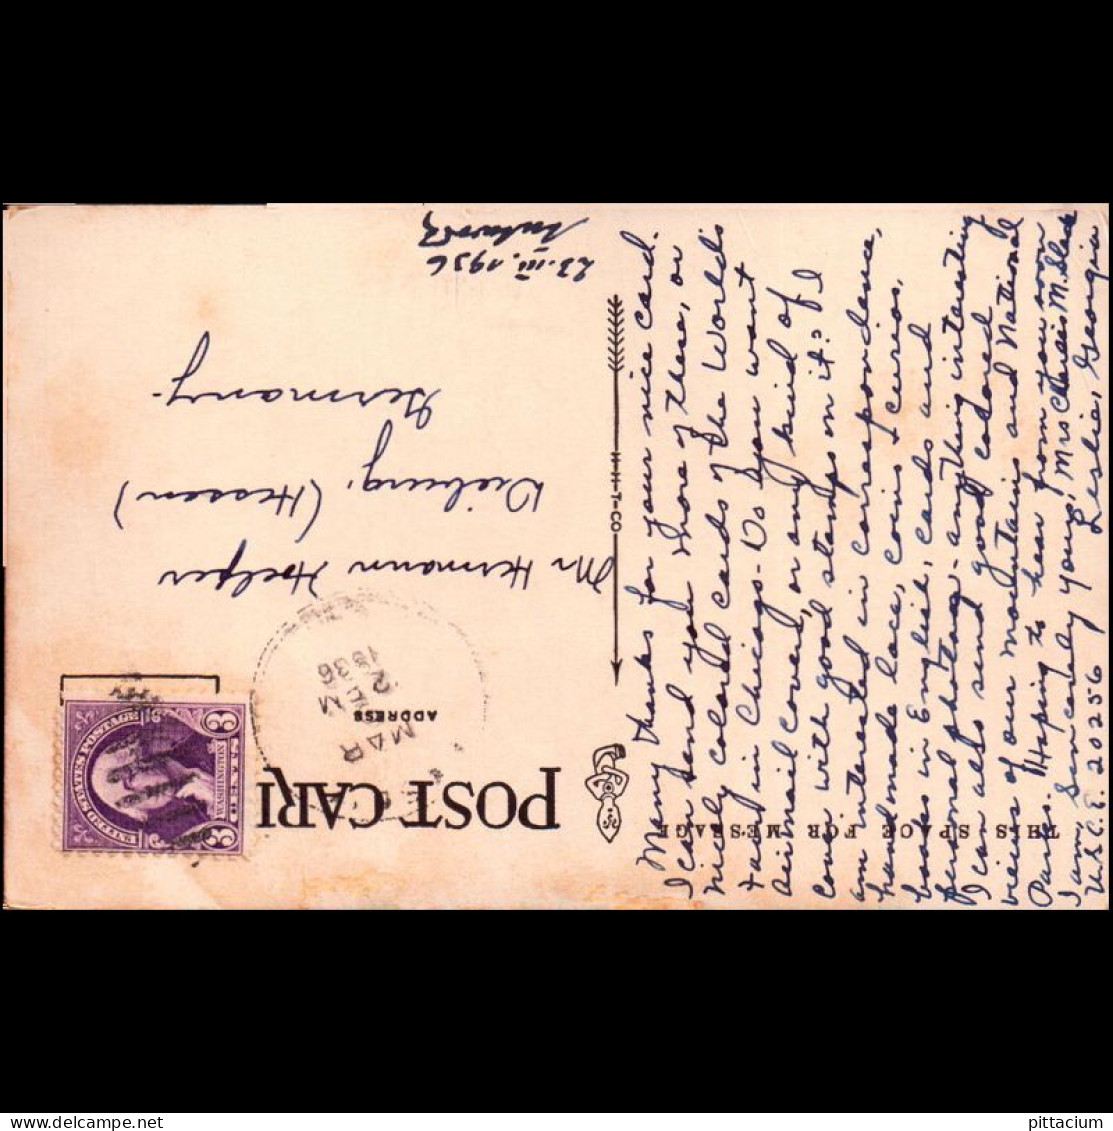 Many thanks for your nice card.
I can send you more of these, or
nicely colored cards of the World's
Fair in Chicago - Do you want
airmail covers, or any kind of
cover with good stamps on it? I
am interested in correspondence,
handmade lace, coins & curios,
books in English, cards and
personal photos, - anything interesting
I can also send good colored
views of our mountains and National
Parks. Hoping to hear from you soon
I am Sincerely yours, Mrs M. Slade
U.S.C.E. 20256 Leslie, Georgia
THIS SPACE FOR MESSAGE
H-H-T-CO
POST CARD
ADDRESS
MAR
2
1936
UNITED STATES POSTAGE
WASHINGTON
3 3
Mr Hermann Hoelzer
Dieburg, (Hessen)
Germany.
23.III.1936
pittacium